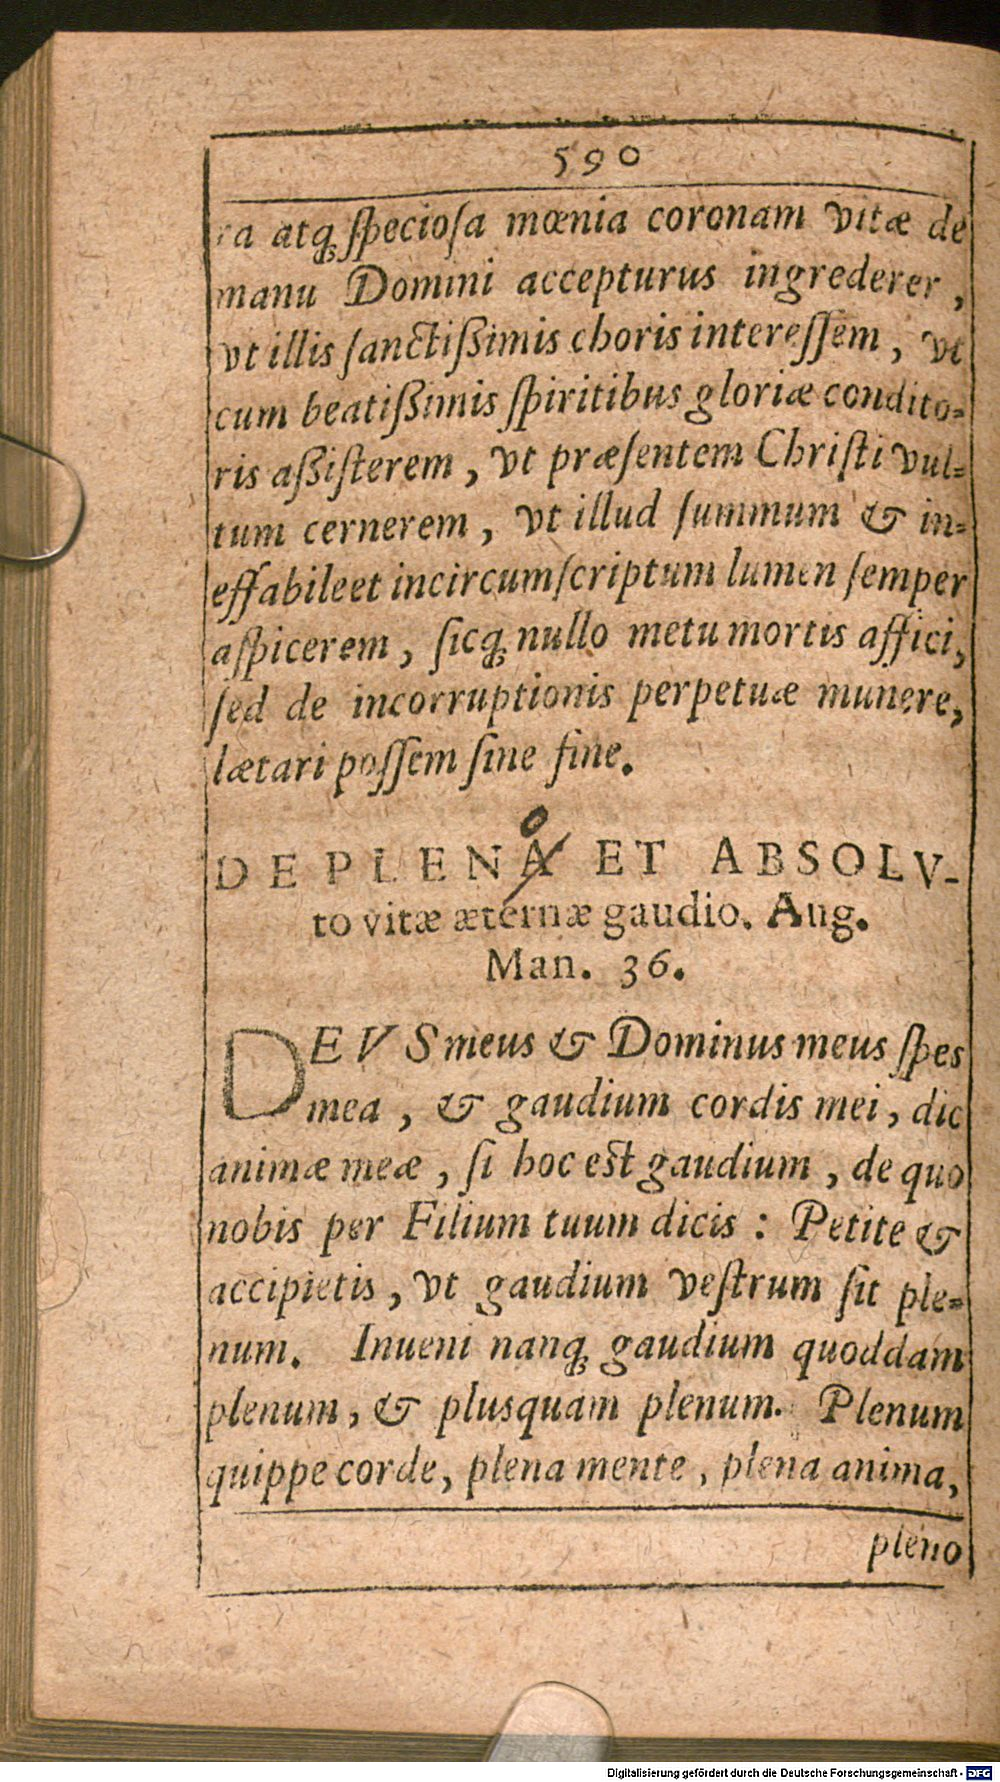 590
ra atq; ſpecioſa mœnia coronam vitæ de
manu Domini accepturus ingrederer,
vt illis ſanctiſsimis choris intereſſem, vt
cum beatiſsimis ſpiritibus gloriæ condito-
ris aſsiſterem, vt præſentem Chriſti vul-
tum cernerem, vt illud ſummum & in-
effabileet incircumſcriptum lumen ſemper
aſpicerem, ſicq; nullo metu mortis affici,
ſed de incorruptionis perpetuæ munere,
lætari poſſem ſine fine.
DE PLENA ET ABSOLV-
o
to vitæ æternæ gaudio. Aug.
Man. 36.
DEVS meus & Dominus meus ſpes
mea, & gaudium cordis mei, dic
animæ meæ, ſi hoc est gaudium, de quo
nobis per Filium tuum dicis: Petite &
accipietis, vt gaudium veſtrum ſit ple-
num. Inueni nanq; gaudium quoddam
plenum, & plusquam plenum. Plenum
quippe corde, plena mente, plena anima,
pleno
Digitalisierung gefördert durch die Deutsche Forschungsgemeinschaft - DFG